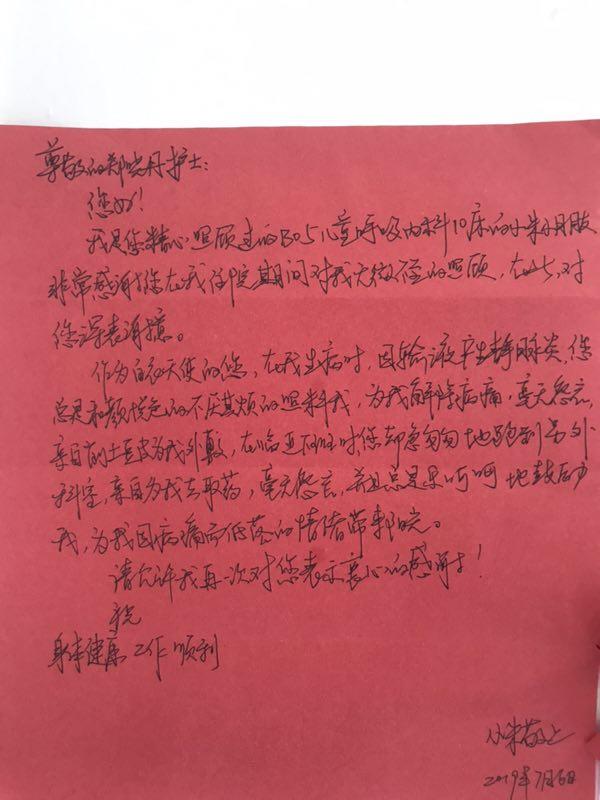 尊敬的郑晓丹护士:
您好!
我是您精心照顾过的B05儿童呼吸内科10床的小朱明月朋友
非常感谢您在我住院期间对我无微不至的照顾,在此,对
您深表谢意。
作为白衣天使的您,在我生病时,因输液产生静脉炎,您
总是和颜悦色的不厌其烦的照料我,为我解除病痛,毫无怨言,
亲自削土豆皮为我外敷,在临近下班时,您却急匆匆地跑到另外
科室,亲自为我去取药,毫无怨言,并且总是笑呵呵地鼓励
我,为我因病痛而低落的情绪带来
请允许我再一次对您表示衷心的感谢!
祝
身体健康 工作顺利
小朱敬上
2019年7月6日